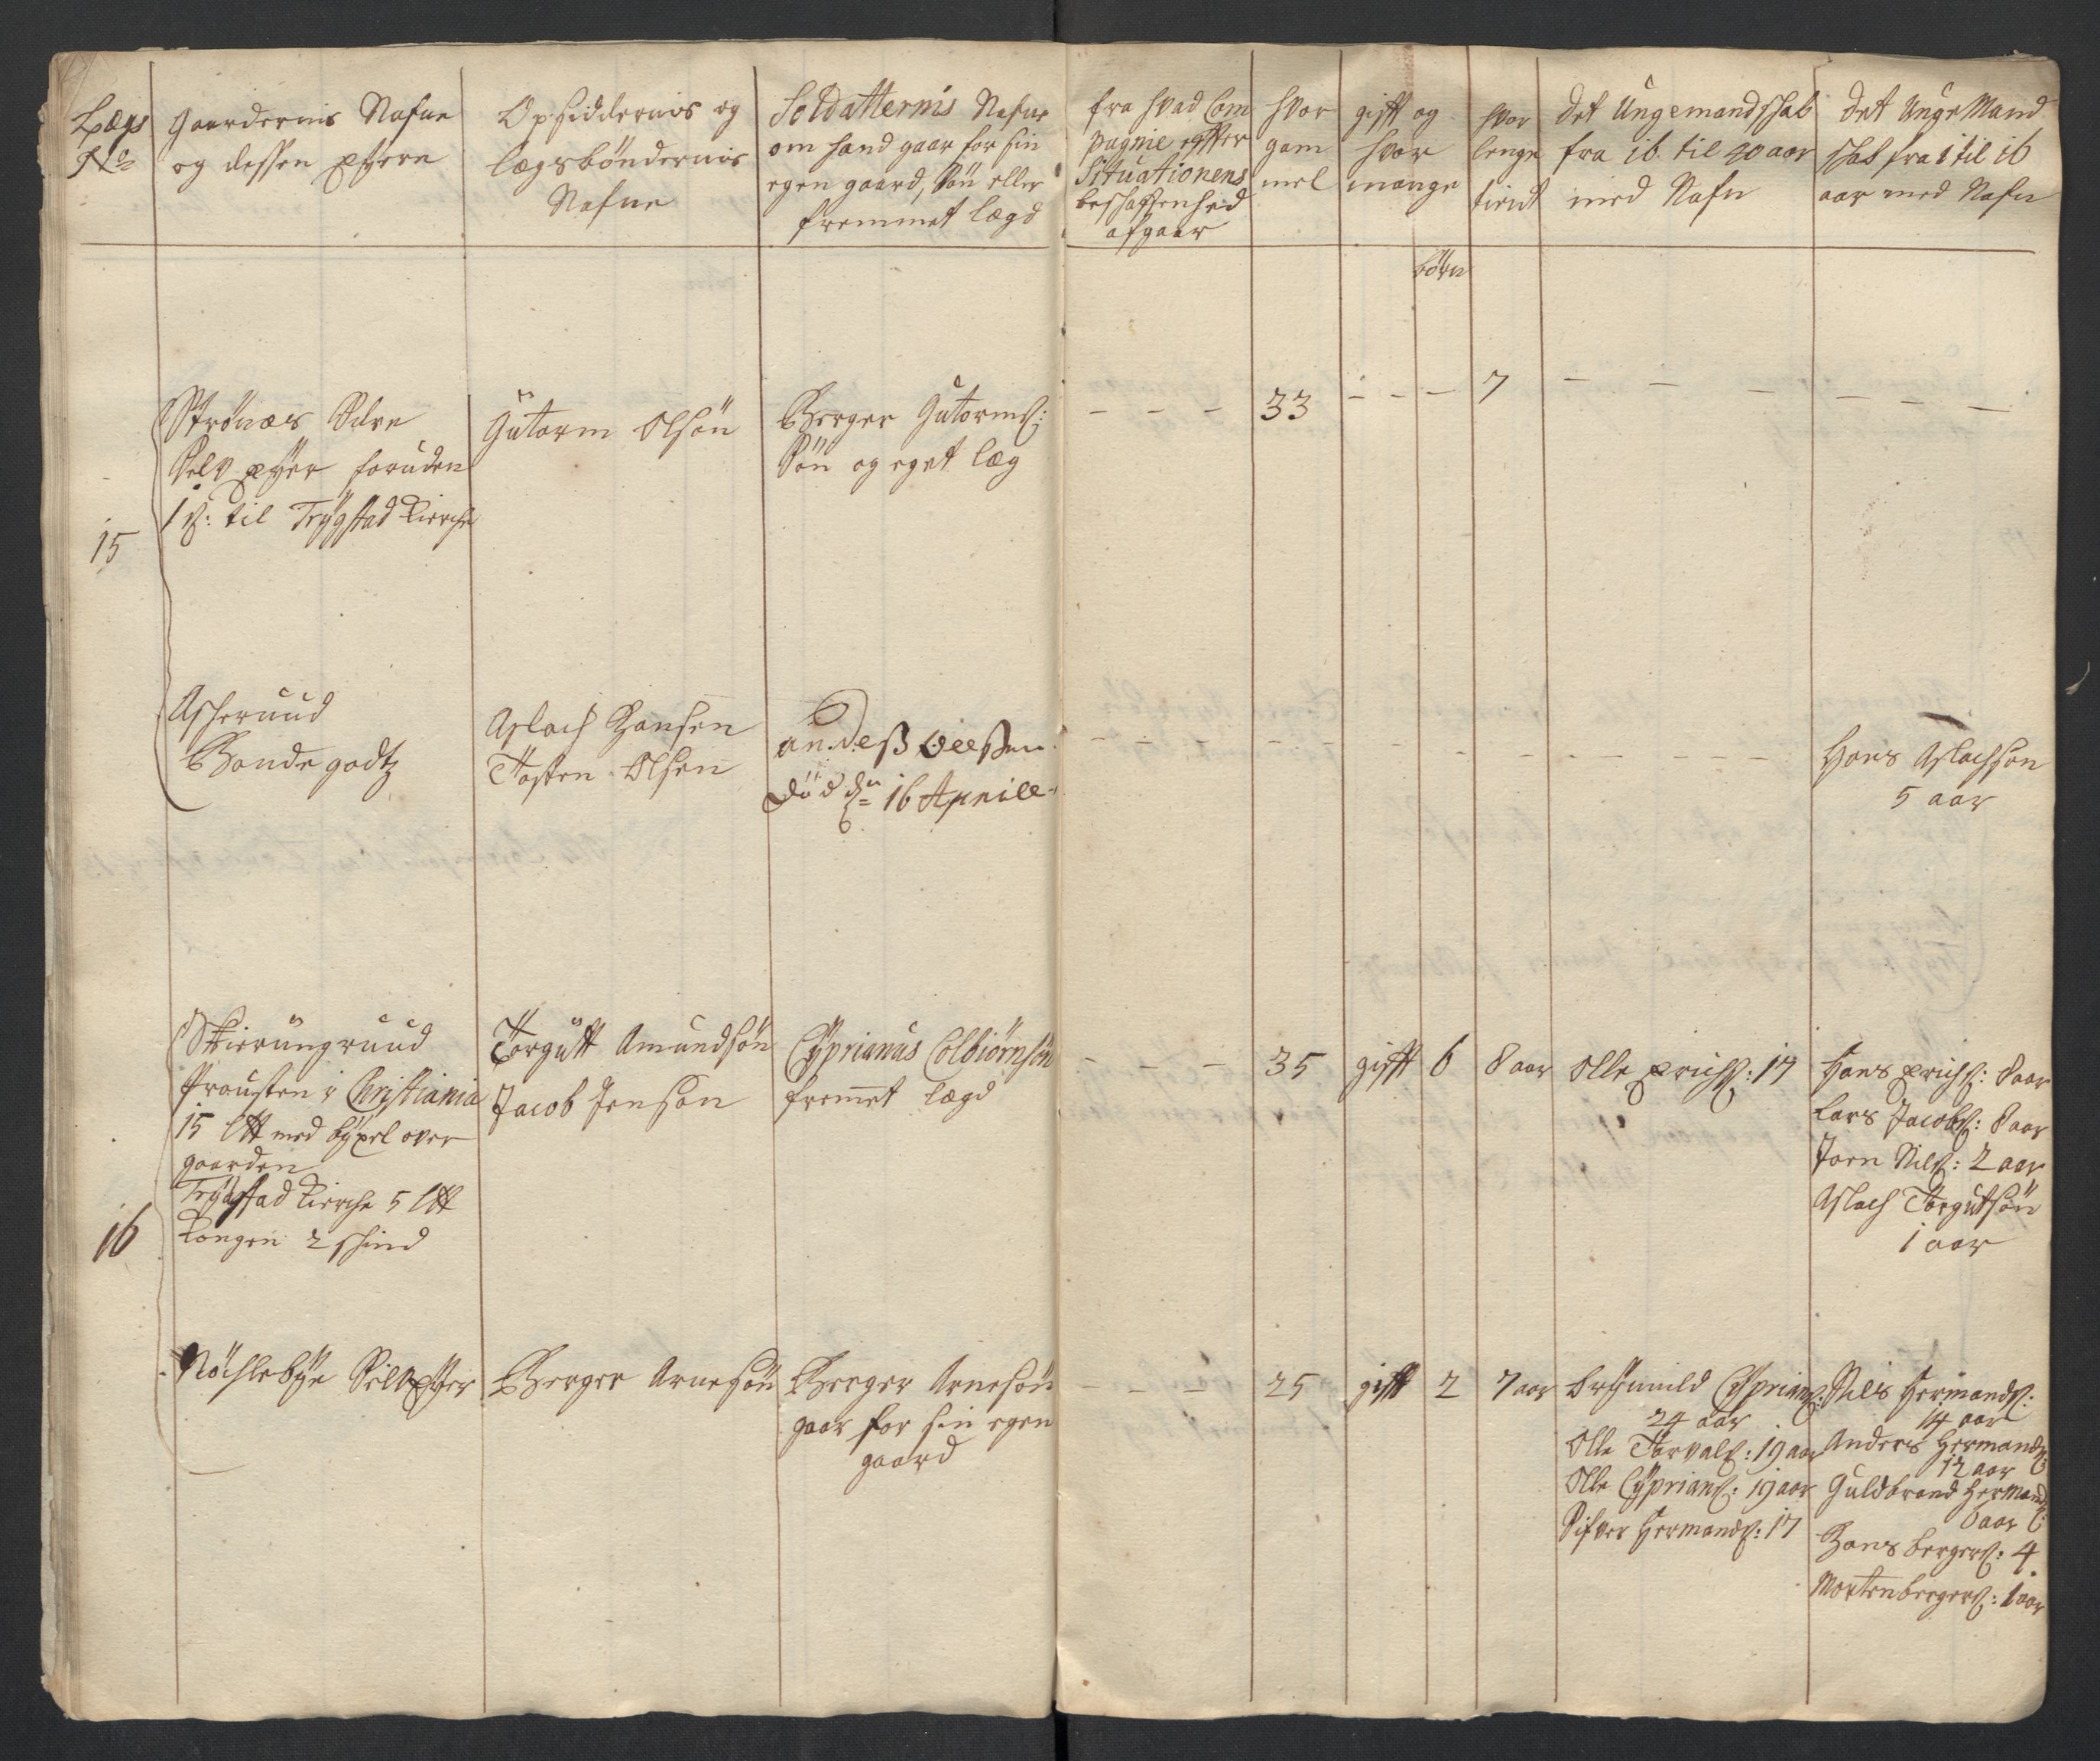 Lægs
No
Gaardernis Nafne
og dessen Eyere
Opsiddernis og
lægsbøndernis
Nafne
Soldatternis Nafne
om hand gaar for sin
egen gaard, Søn eller
fremmet lægd
fra hvad Com
pagnie efter
Situationens
beschaffenhed
afgaar
hvor
gam
mel
gift og
hvor
mange
børn
hvor
lenge
tient
Det Ungemandschab
fra 16 til 40 aar
med Nafn
Det Unge Mand
schab fra 1 til 16
aar med Nafn
15
Strønæs
Selv Eyer foruden
1 S: til Trÿgstad Kirche
Gutorm Olsøn
Berger Gutorms:
Søn og eget læg
- - - 33 - - - 7 - - - - - -
Ascheruud
Bondegodtz
Aslach Hansen
Tosten Olsen
Andeß Oelßen
Død d: 16 Aprill
Hans Aslachsøn
5 aar
16
Skierungruud
Prousten i Christiania
15 Ltt med bÿxel over
gaarden
Trÿgstad Kierche 5 Ltt
Kongen 2 schind
Torgutt Amundsøn
Jacob Jensøn
Cÿprianus Colbiørnsøn
fremet lægd
- - - 35 gift 6 8 aar
Olle Erichs: 17
Hans Erichs: 8 aar
Lars Jacobs: 8 aar
Joen Nils: 2 aar
Aslach Torgutsøn
1 aar
Nøchlebÿe SelvEyer
Berger Arnesøn
Berger Arnesøn
gaar for sin egen
gaard
- - - 25 gift 2 7 aar
Brÿnnild Cÿprians:
24 aar
Olle Torvals: 19 aar
Olle Cÿprians: 19 aar
Sifver Hermands: 17
Nils Hermands:
14 aar
Anders Hermands:
12 aar
Guldbrand Hermands:
6 aar
Hans bergers: 4
Morten bergers: 1 aar